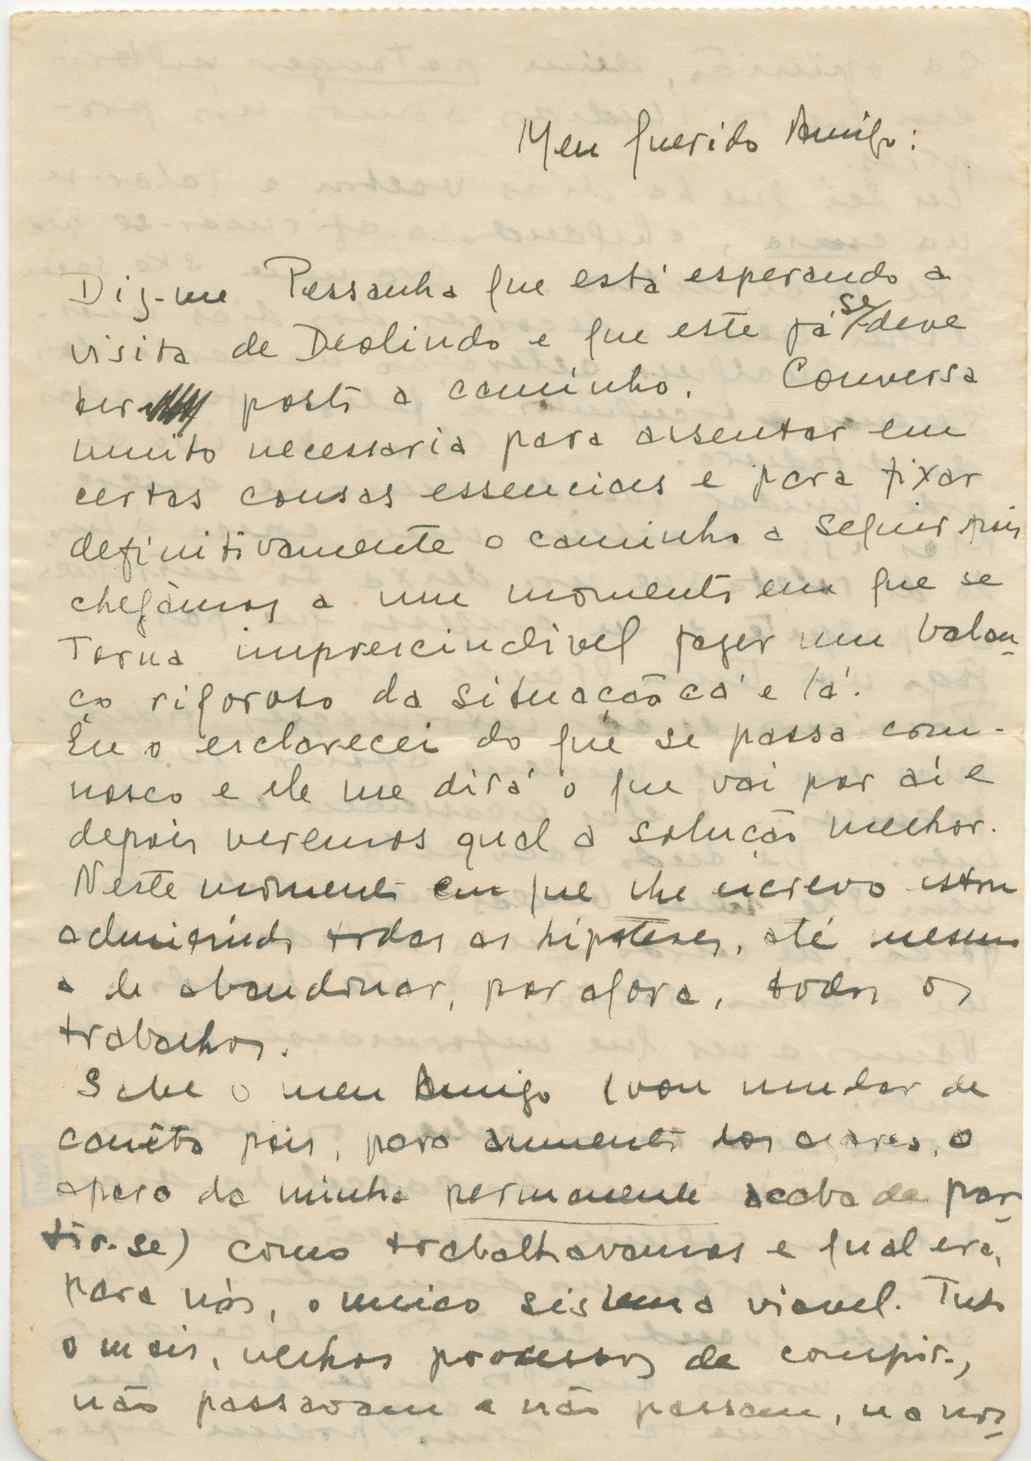 Meu Querido Amigo:
Diz-me Pessanha que está esperando a
visita de Deolindo e que este já se deve
ter posto a caminho. Conversa
muito necessaria para assentar em
certas cousas essenciais e para fixar
definitivamente o caminho a seguir pois
chegàmos a um momento em que se
torna imprescindivel fazer um balan-
ço rigoroso da situação cá e lá.
Eu o esclarecei do que se passa com-
nosco e ele me dirá o que vai por aí e
depois veremos qual a solução melhor.
Neste momento em que lhe escrevo estou
admitindo todas as hipoteses, até mesmo
a de abandonar, por agora, todos os
trabalhos.
Sabe o meu Amigo (vou mudar de
canêta pois, para aumento dos azares, o
aparo da minha permanente acaba de par-
tir-se) como trabalhavamos e qual era,
para nós, o unico sistema viavel. Tudo
o mais, velhos processos de conspir.,
não passavam e não passam, na nos-